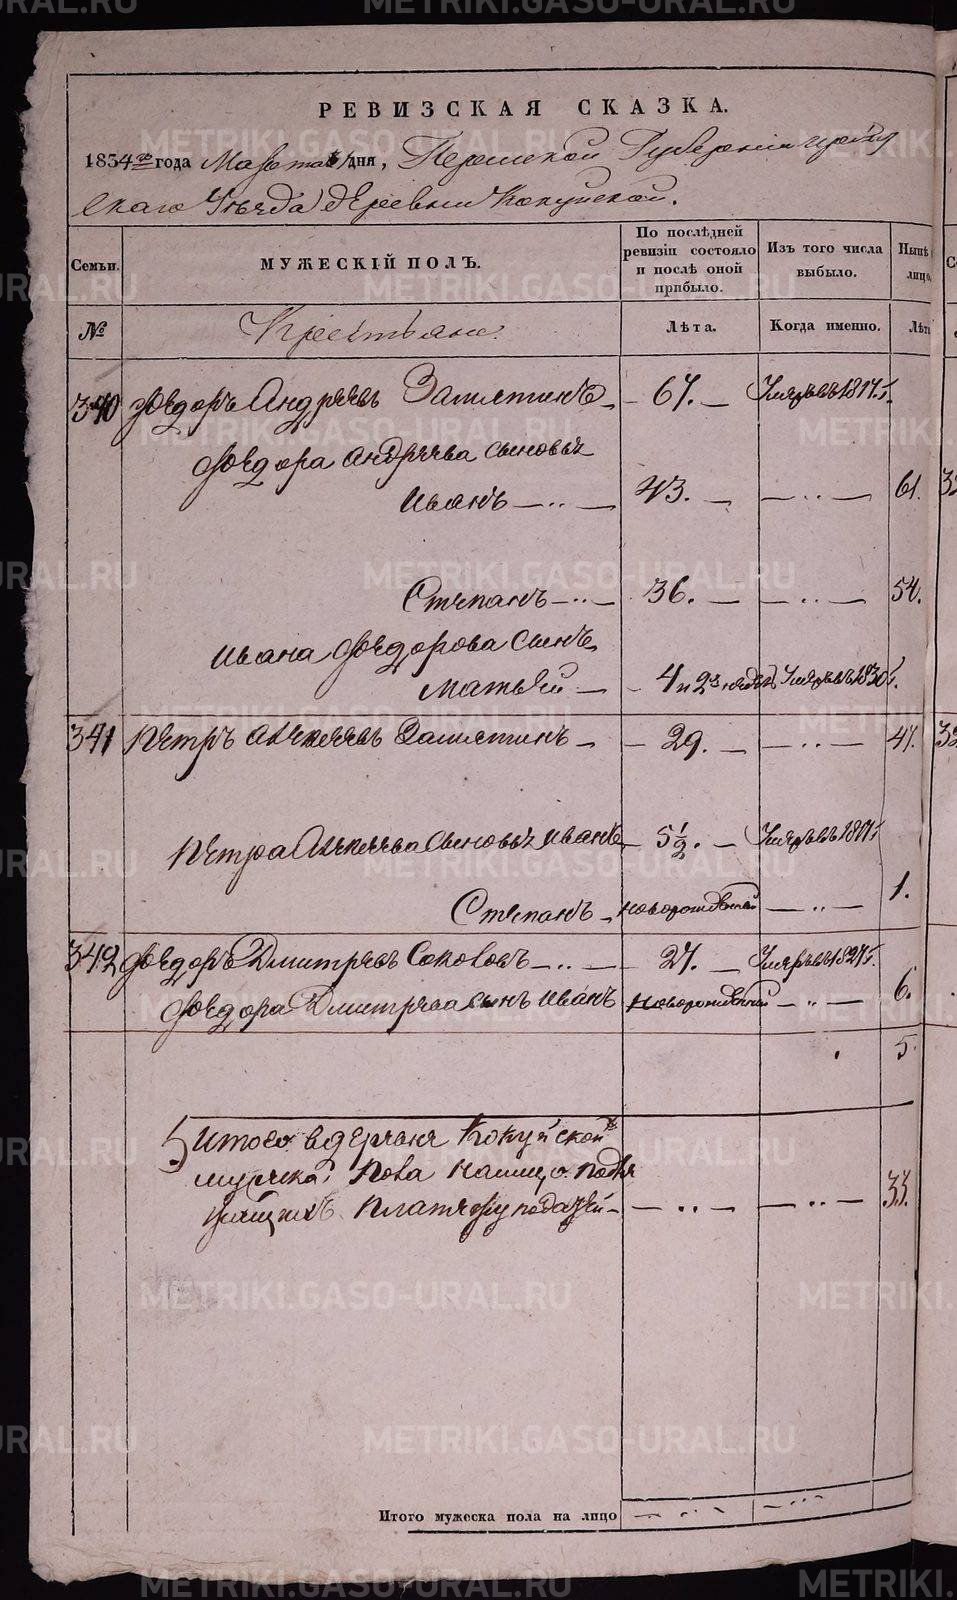 РЕВИЗСКАЯ СКАЗКА.
1834го года Марта 1 дня, Пермской Губернии
скаго Уѣзда деревни Кокуйской.
Семьи. МУЖЕСКІЙ ПОЛЪ. По послѣдней ревизіи состояло и послѣ оной прибыло. Изъ того числа выбыло. Нынѣ лицо.
№ Крестьяне. Лѣта. Когда именно. Лѣт
340 Федоръ Андреевъ Замятинъ 67. Умеръ въ 1817 г.
Федора Андреева сыновья
Иванъ 43. 61.
Степанъ 36. 54.
Ивана Федорова сынъ
Матвей 4 и 2 недѣль Умеръ въ 1830 г.
341 Петръ Алексеевъ Замятинъ 29. 47.
Петра Алексеева сыновья Иванъ 5 1/2. Умеръ въ 18 г
Степанъ новорожденный 1.
342 Федоръ Дмитревъ Соковъ 27. Умеръ въ 1827 г.
Федора Дмитреева сынъ Иванъ новорожденный 6.
5.
Итого в деревне Кокуйской
мужска пола налицо подле
жащихъ платежу податей 33.
Итого мужеска пола на лицо
METRIKI.GASO-URAL.RU